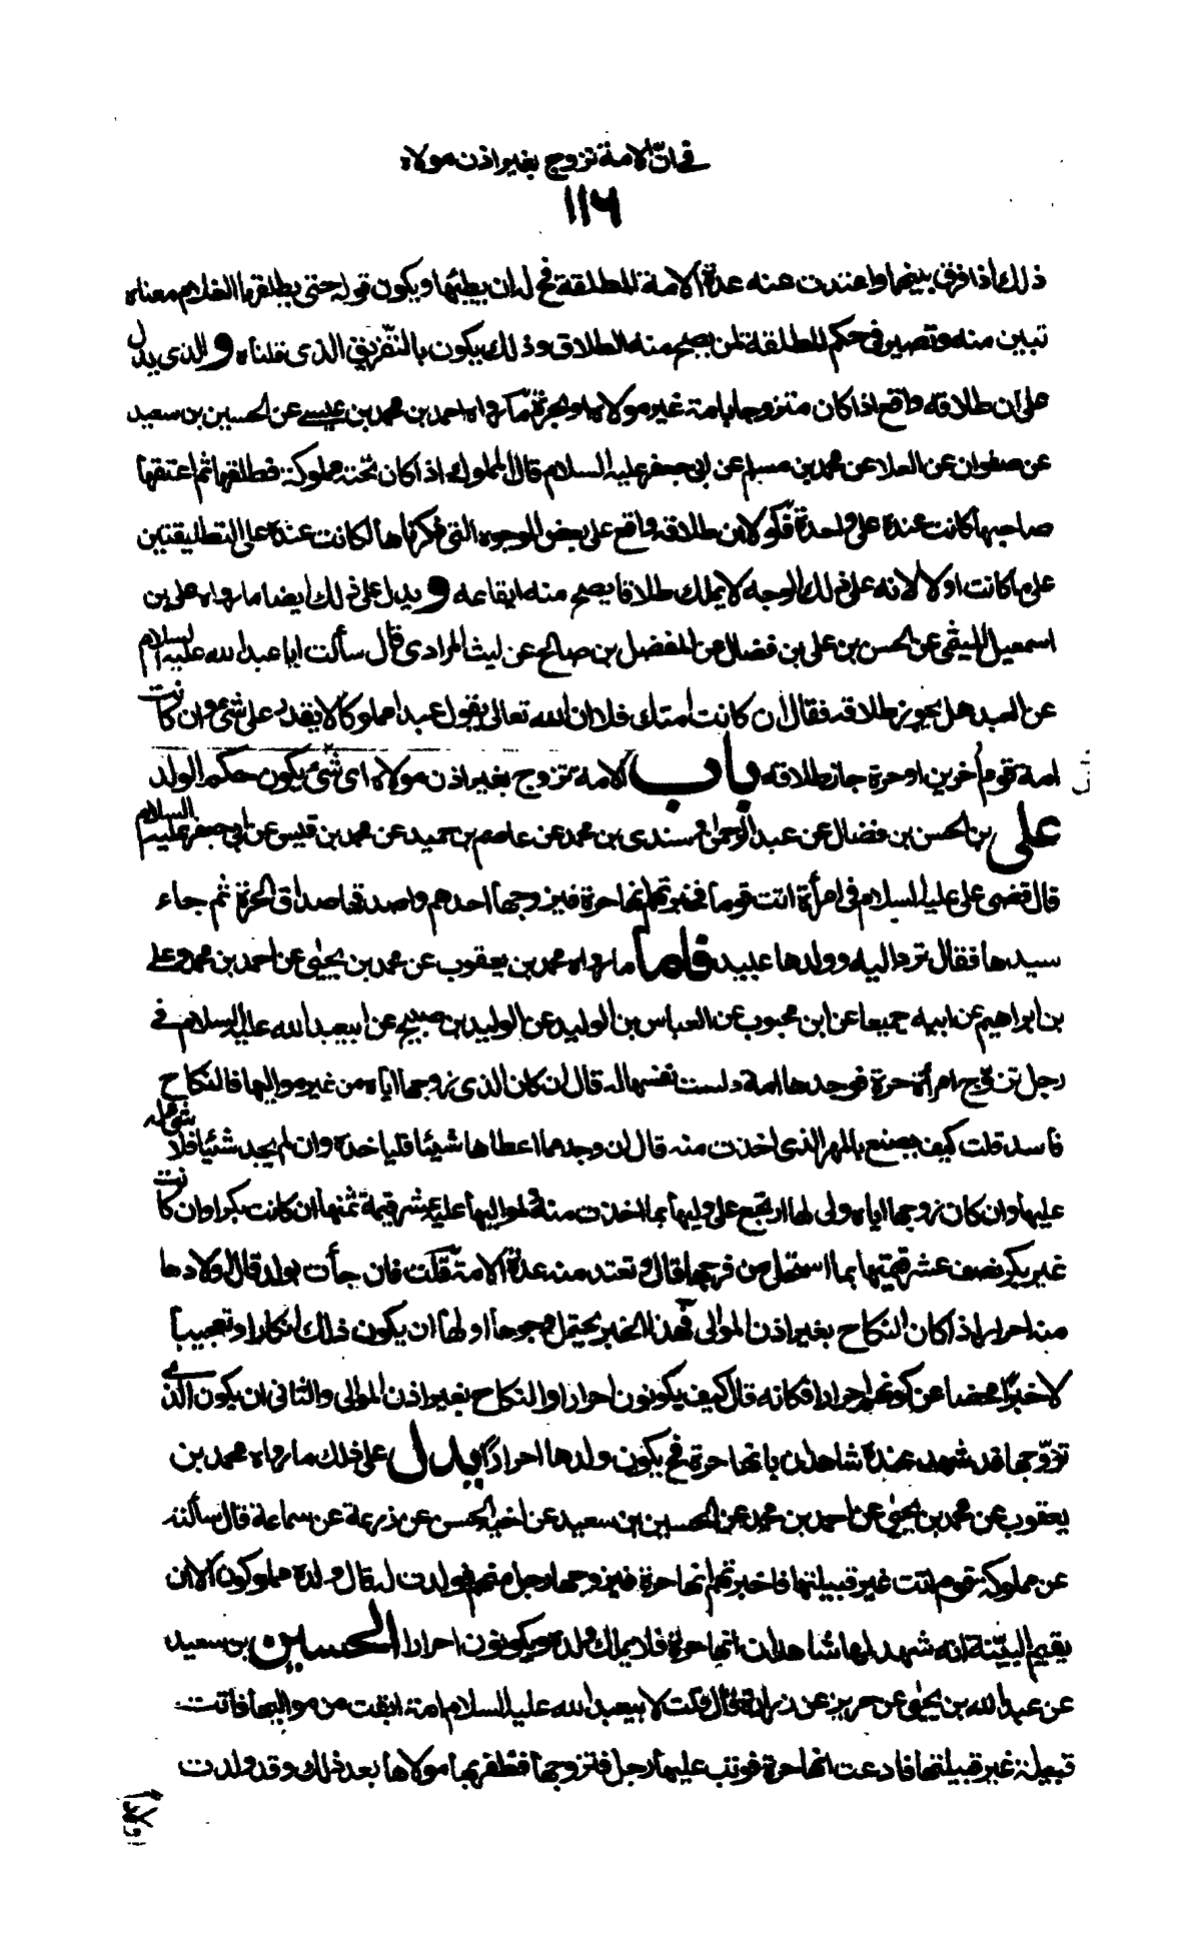 في ان الامة تزوج بغير اذن مولاه
١١٦
ذلك اذا فرق بينهما واعتدت عنه عدة الامة المطلقة فح له ان يطئها ويكون قوله حتى يطلقها الغلام معناه
تبين منه وتصير في حكم المطلقة لمن يصح منه الطلاق وذلك يكون بالتفريق الذى قلناه والذى يدل
على ان طلاقه واقع اذا كان متزوجا بامة غير مولاه او بحرة ما رواه احمد بن محمد بن عيسى عن الحسين بن سعيد
عن صفوان عن العلا عن محمد بن مسلم عن ابى جعفر عليه السلام قال المملوك اذا كان تحته مملوكة فطلقها ثم اعتقها
صاحبها كانت عنده على واحدة فلولا ان طلاقه واقع على بعض الوجوه التى ذكرناها لكانت عنده على التطليقتين
على ما كانت اولا لانه على ذلك الوجه لا يملك طلاقا يصح منه ايقاعه ويدل على ذلك ايضا ما رواه على بن
اسمعيل الميثمى عن الحسن بن على بن فضال عن المفضل بن صالح عن ليث المرادى قال سألت ابا عبد الله عليه السلام
عن العبد هل يجوز طلاقه فقال ان كانت امتك فلا ان الله تعالى يقول عبدا مملوكا لا يقدر على شئ وان كانت
امة قوم آخرين او حرة جاز طلاقه باب الامة تتزوج بغير اذن مولاه اى شئ يكون حكم الولد
على بن الحسن بن فضال عن عبد الرحمن وسندى بن محمد عن عاصم بن حميد عن محمد بن قيس عن ابى جعفر عليه السلام
قال قضى على عليه السلام فى امرأة اتت قوما فخبرتهم انها حرة فتزوجها احدهم واصدقها صداق الحرة ثم جاء
سيدها فقال ترد اليه وولدها عبيد فاما ما رواه محمد بن يعقوب عن محمد بن يحيى عن احمد بن محمد وعلى
بن ابراهيم عن ابيه جميعا عن ابن محبوب عن العباس بن الوليد عن الوليد بن صبيح عن ابيعبد الله عليه السلام فى
رجل تزوج امرأة حرة فوجدها امة دلست نفسها له قال ان كان الذى زوجها اياه من غير مواليها فالنكاح
فاسد قلت كيف يصنع بالمهر الذى اخذت منه قال ان وجد مما اعطاها شيئا فلياخذه وان لم يجد شيئا فلا شئ له
عليها وان كان زوجها اياه ولى لها ارتجع على وليها بما اخذت منه ولمواليها عليه عشر قيمة ثمنها ان كانت بكرا وان كانت
غير بكر نصف عشر قيمتها بما استحل من فرجها قال وتعتد منه عدة الامة قلت فان جأت بولد قال اولادها
منه احرار اذا كان النكاح بغير اذن الموالى فهذا الخبر يحتمل وجوها اولها ان يكون ذلك انكارا وتعجيبا
لا خبرا محضا عن كونهم احرارا فكانه قال كيف يكونون احرارا والنكاح بغير اذن الموالى والثانى ان يكون الذى
تزوجها قد شهد عنده شاهدان بانها حرة فح يكون ولدها احرارا يدل على ذلك ما رواه محمد بن
يعقوب عن محمد بن يحيى عن احمد بن محمد عن الحسين بن سعيد عن اخيه الحسن عن زرعة عن سماعة قال سألته
عن مملوكة قوم اتت غير قبيلتها فاخبرتهم انها حرة فتزوجها رجل منهم فولدت له قال ولده مملوكون الا ان
يقيم البينة انه شهد لها شاهدان انها حرة فلا يملك ولده ويكونون احرارا الحسين بن سعيد
عن عبد الله بن يحيى عن حريز عن زرارة قال قلت لابيعبد الله عليه السلام امة ابقت من مواليها فاتت
قبيلة غير قبيلتها فادعت انها حرة فوثب عليها رجل فتزوجها فظفر بها مولاها بعد ذلك وقد ولدت